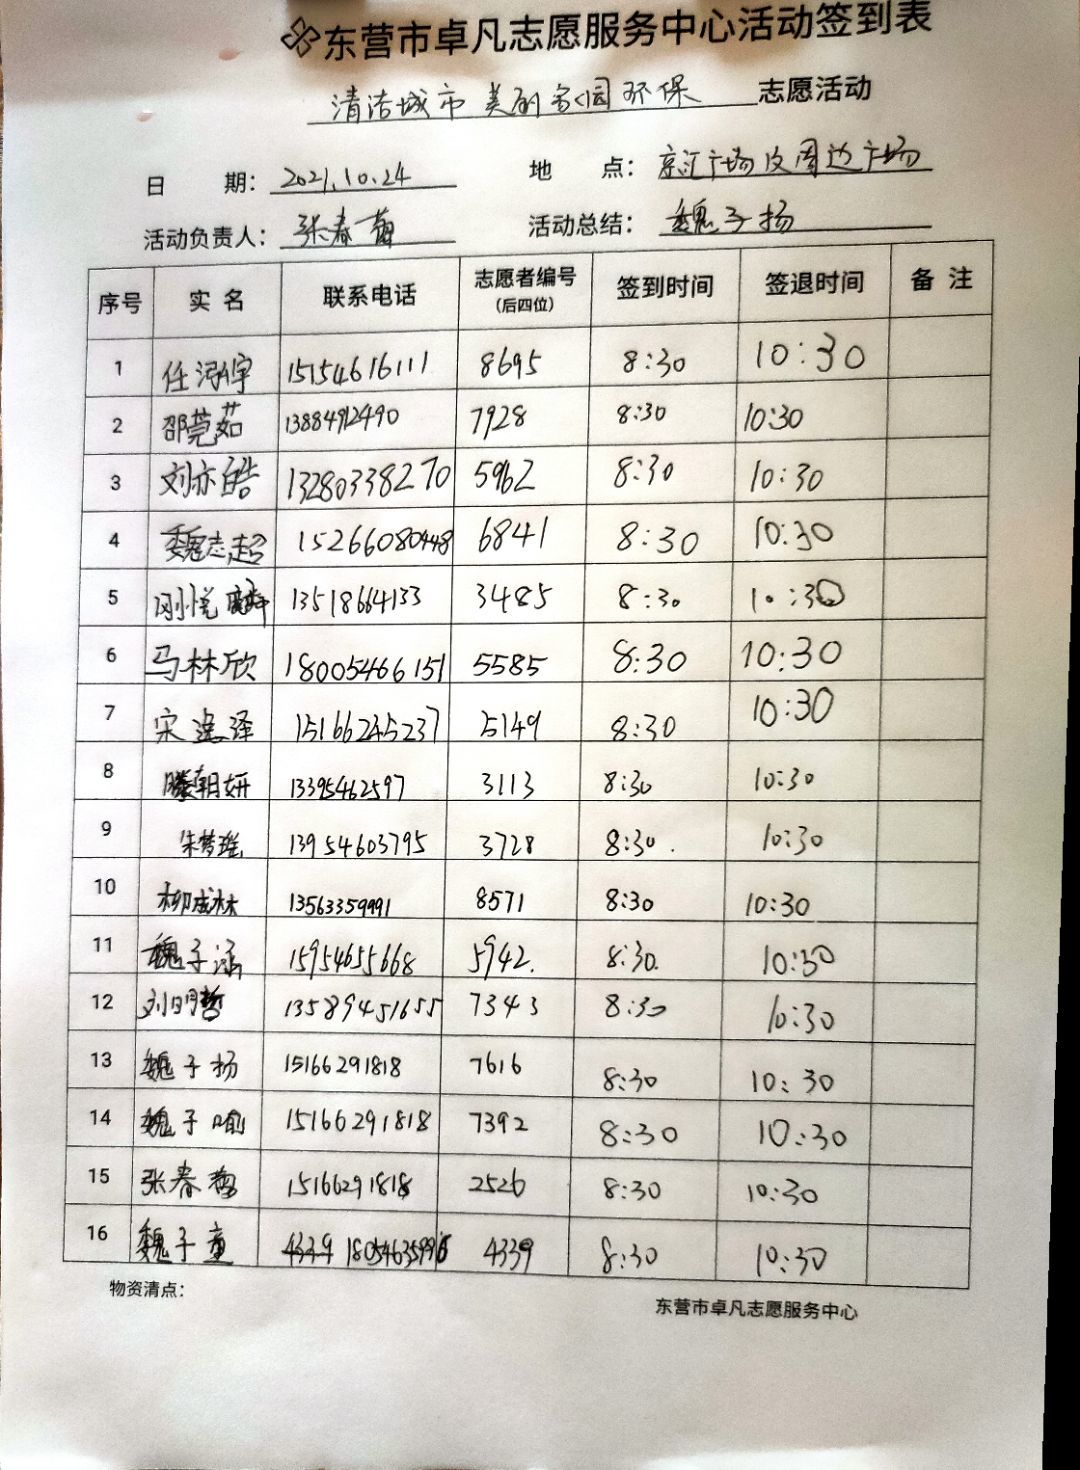 东营市卓凡志愿服务中心活动签到表
清洁城市 美丽家园 环保 志愿活动
日 期: 2021.10.24 地 点: 京汇广场及周边广场
活动负责人: 张春 活动总结: 魏子扬
序号 实名 联系电话 志愿者编号(后四位) 签到时间 签退时间 备注
1 任泓宇 15154616111 8695 8:30 10:30
2 邵莞茹 13884912490 7928 8:30 10:30
3 刘亦皓 13280338270 5962 8:30 10:30
4 魏志超 15266080448 6841 8:30 10:30
5 刚悦 13518664133 3485 8:30 10:30
6 马林欣 18005466151 5585 8:30 10:30
7 宋 泽 15166245237 5149 8:30 10:30
8 滕朝妍 13395462597 3113 8:30 10:30
9 朱梦瑶 13954603795 3728 8:30 10:30
10 柳成林 13563359991 8571 8:30 10:30
11 魏子涵 15954655668 5942. 8:30. 10:30
12 刘明哲 13589451655 7343 8:30 10:30
13 魏子扬 15166291818 7616 8:30 10:30
14 魏子喻 15166291818 7392 8:30 10:30
15 张春 15166291818 2526 8:30 10:30
16 魏子童 4339 18054635996 4339 8:30 10:30
物资清点:
东营市卓凡志愿服务中心